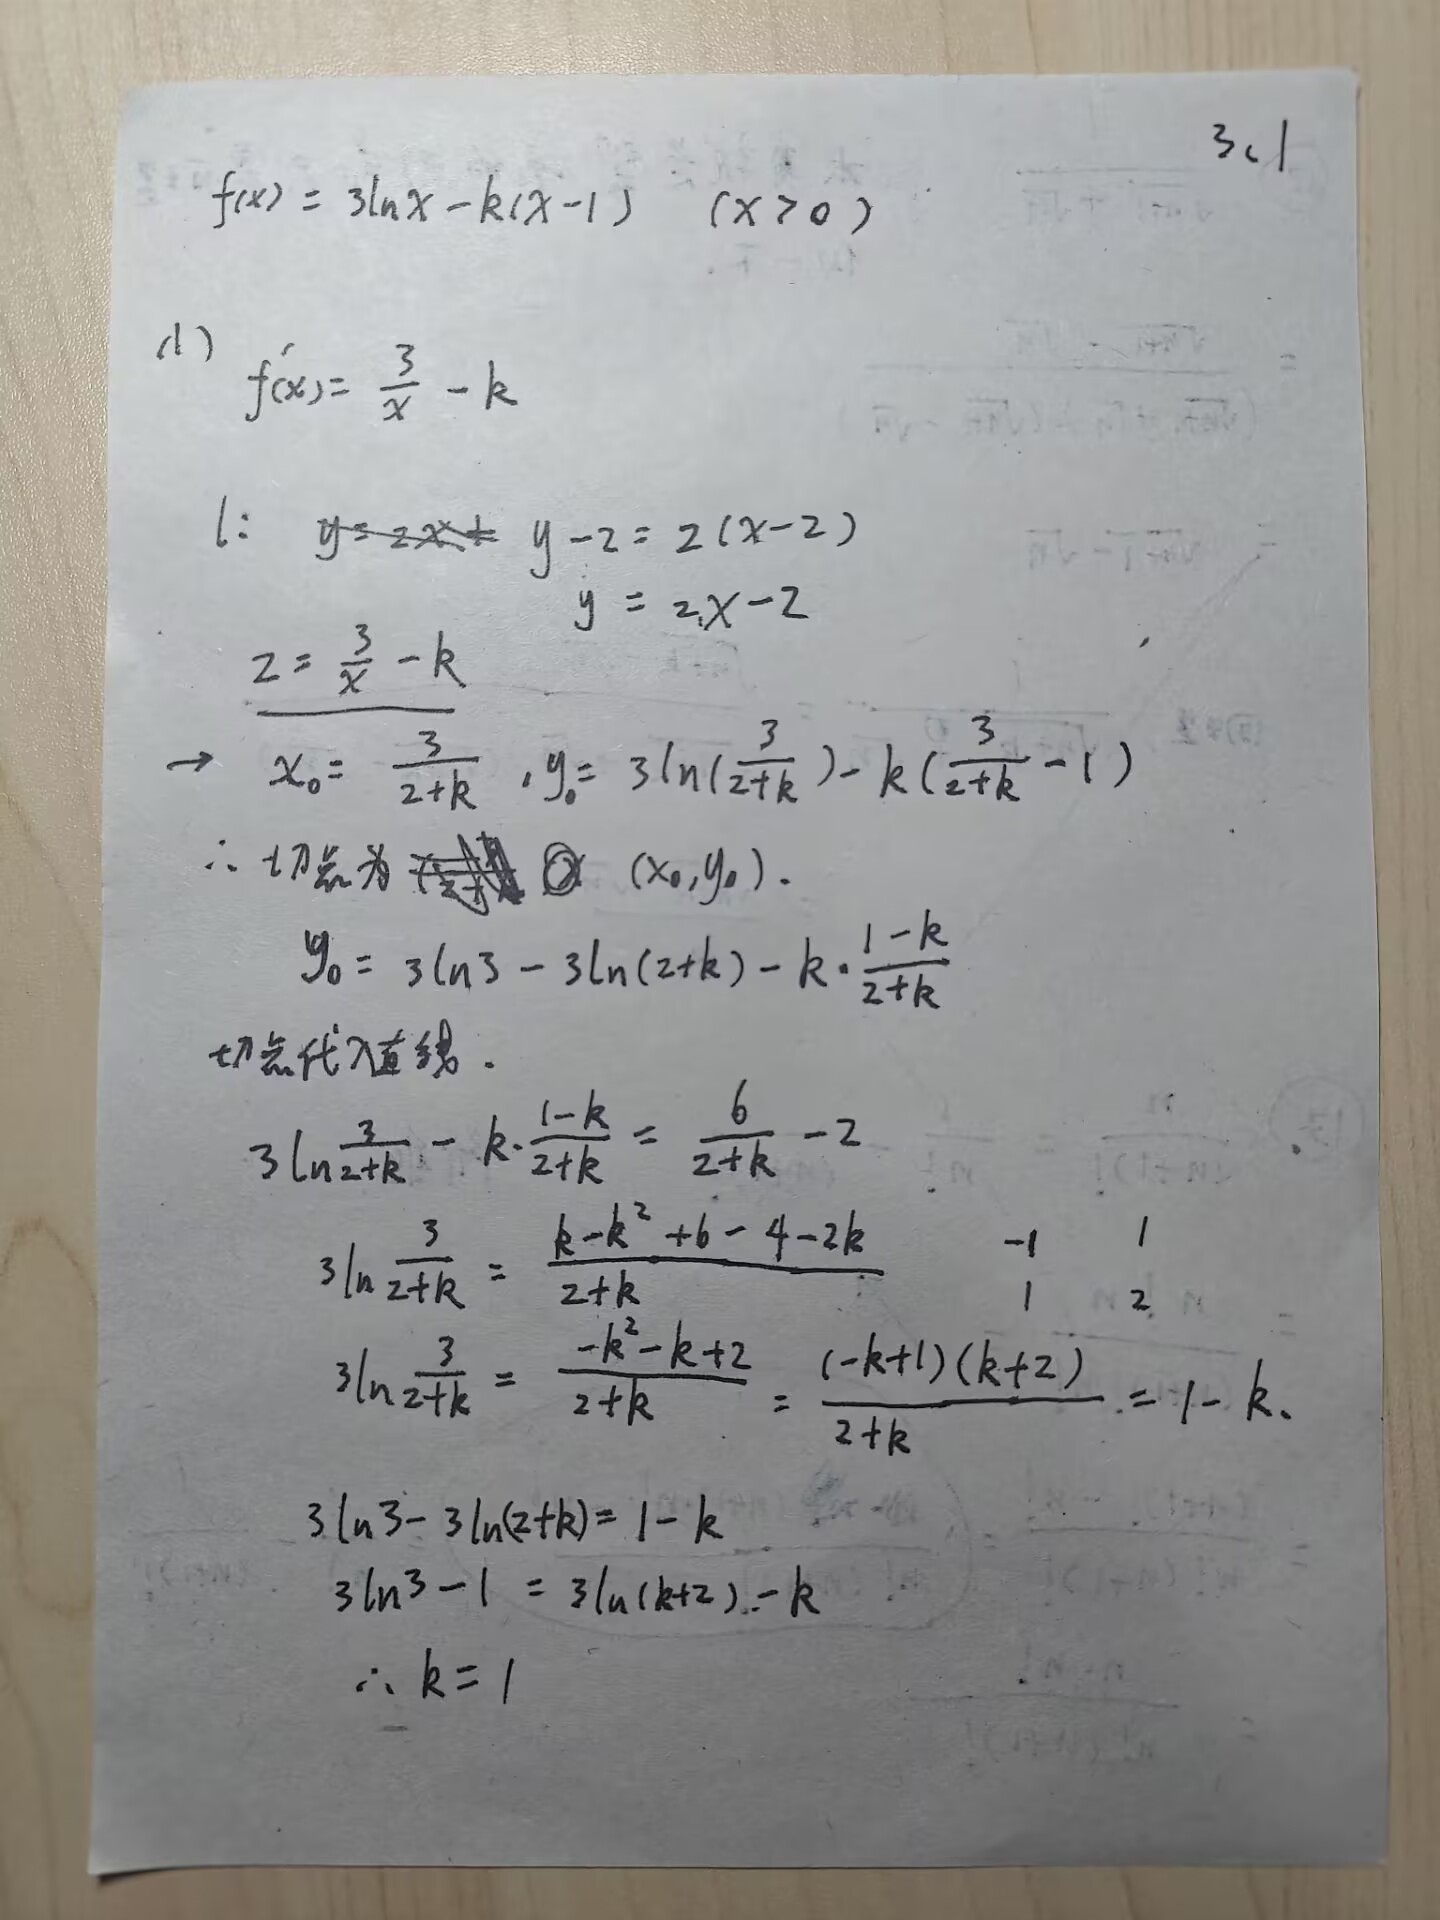 3.1
f(x) = 3lnx - k(x-1) (x>0)
(1)
f'(x) = 3/x - k
l: y=2x+ y-2=2(x-2)
y = 2x-2
2 = 3/x - k
→ x₀ = 3/(2+k), y₀ = 3ln(3/(2+k)) - k(3/(2+k) - 1)
∴ 切点为 (x₀,y₀).
y₀ = 3ln3 - 3ln(2+k) - k·(1-k)/(2+k)
切点代入直线.
3ln 3/(2+k) - k·(1-k)/(2+k) = 6/(2+k) - 2
3ln 3/(2+k) = (k-k²+6-4-2k)/(2+k) -1 1
1 2
3ln 3/(2+k) = (-k²-k+2)/(2+k) = (-k+1)(k+2)/(2+k) = 1-k.
3ln3-3ln(2+k)=1-k
3ln3-1 = 3ln(k+2)-k
∴ k=1